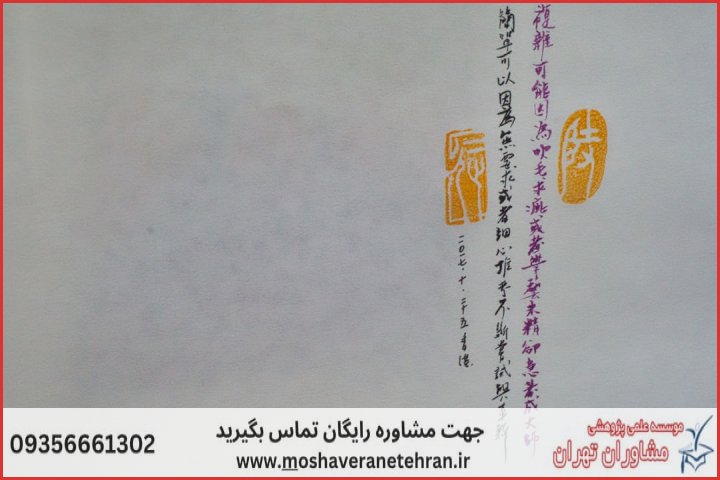 複雜可能因為吹毛求疵或著學藝未精卻急著成大師
簡單可以因為無要求或者細心推敲不斷嘗試與
二〇一七・十・二十五香港
موسسه علمی پژوهشی
مشاوران تهران
جهت مشاوره رایگان تماس بگیرید
www.moshaveranetehran.ir
09356661302